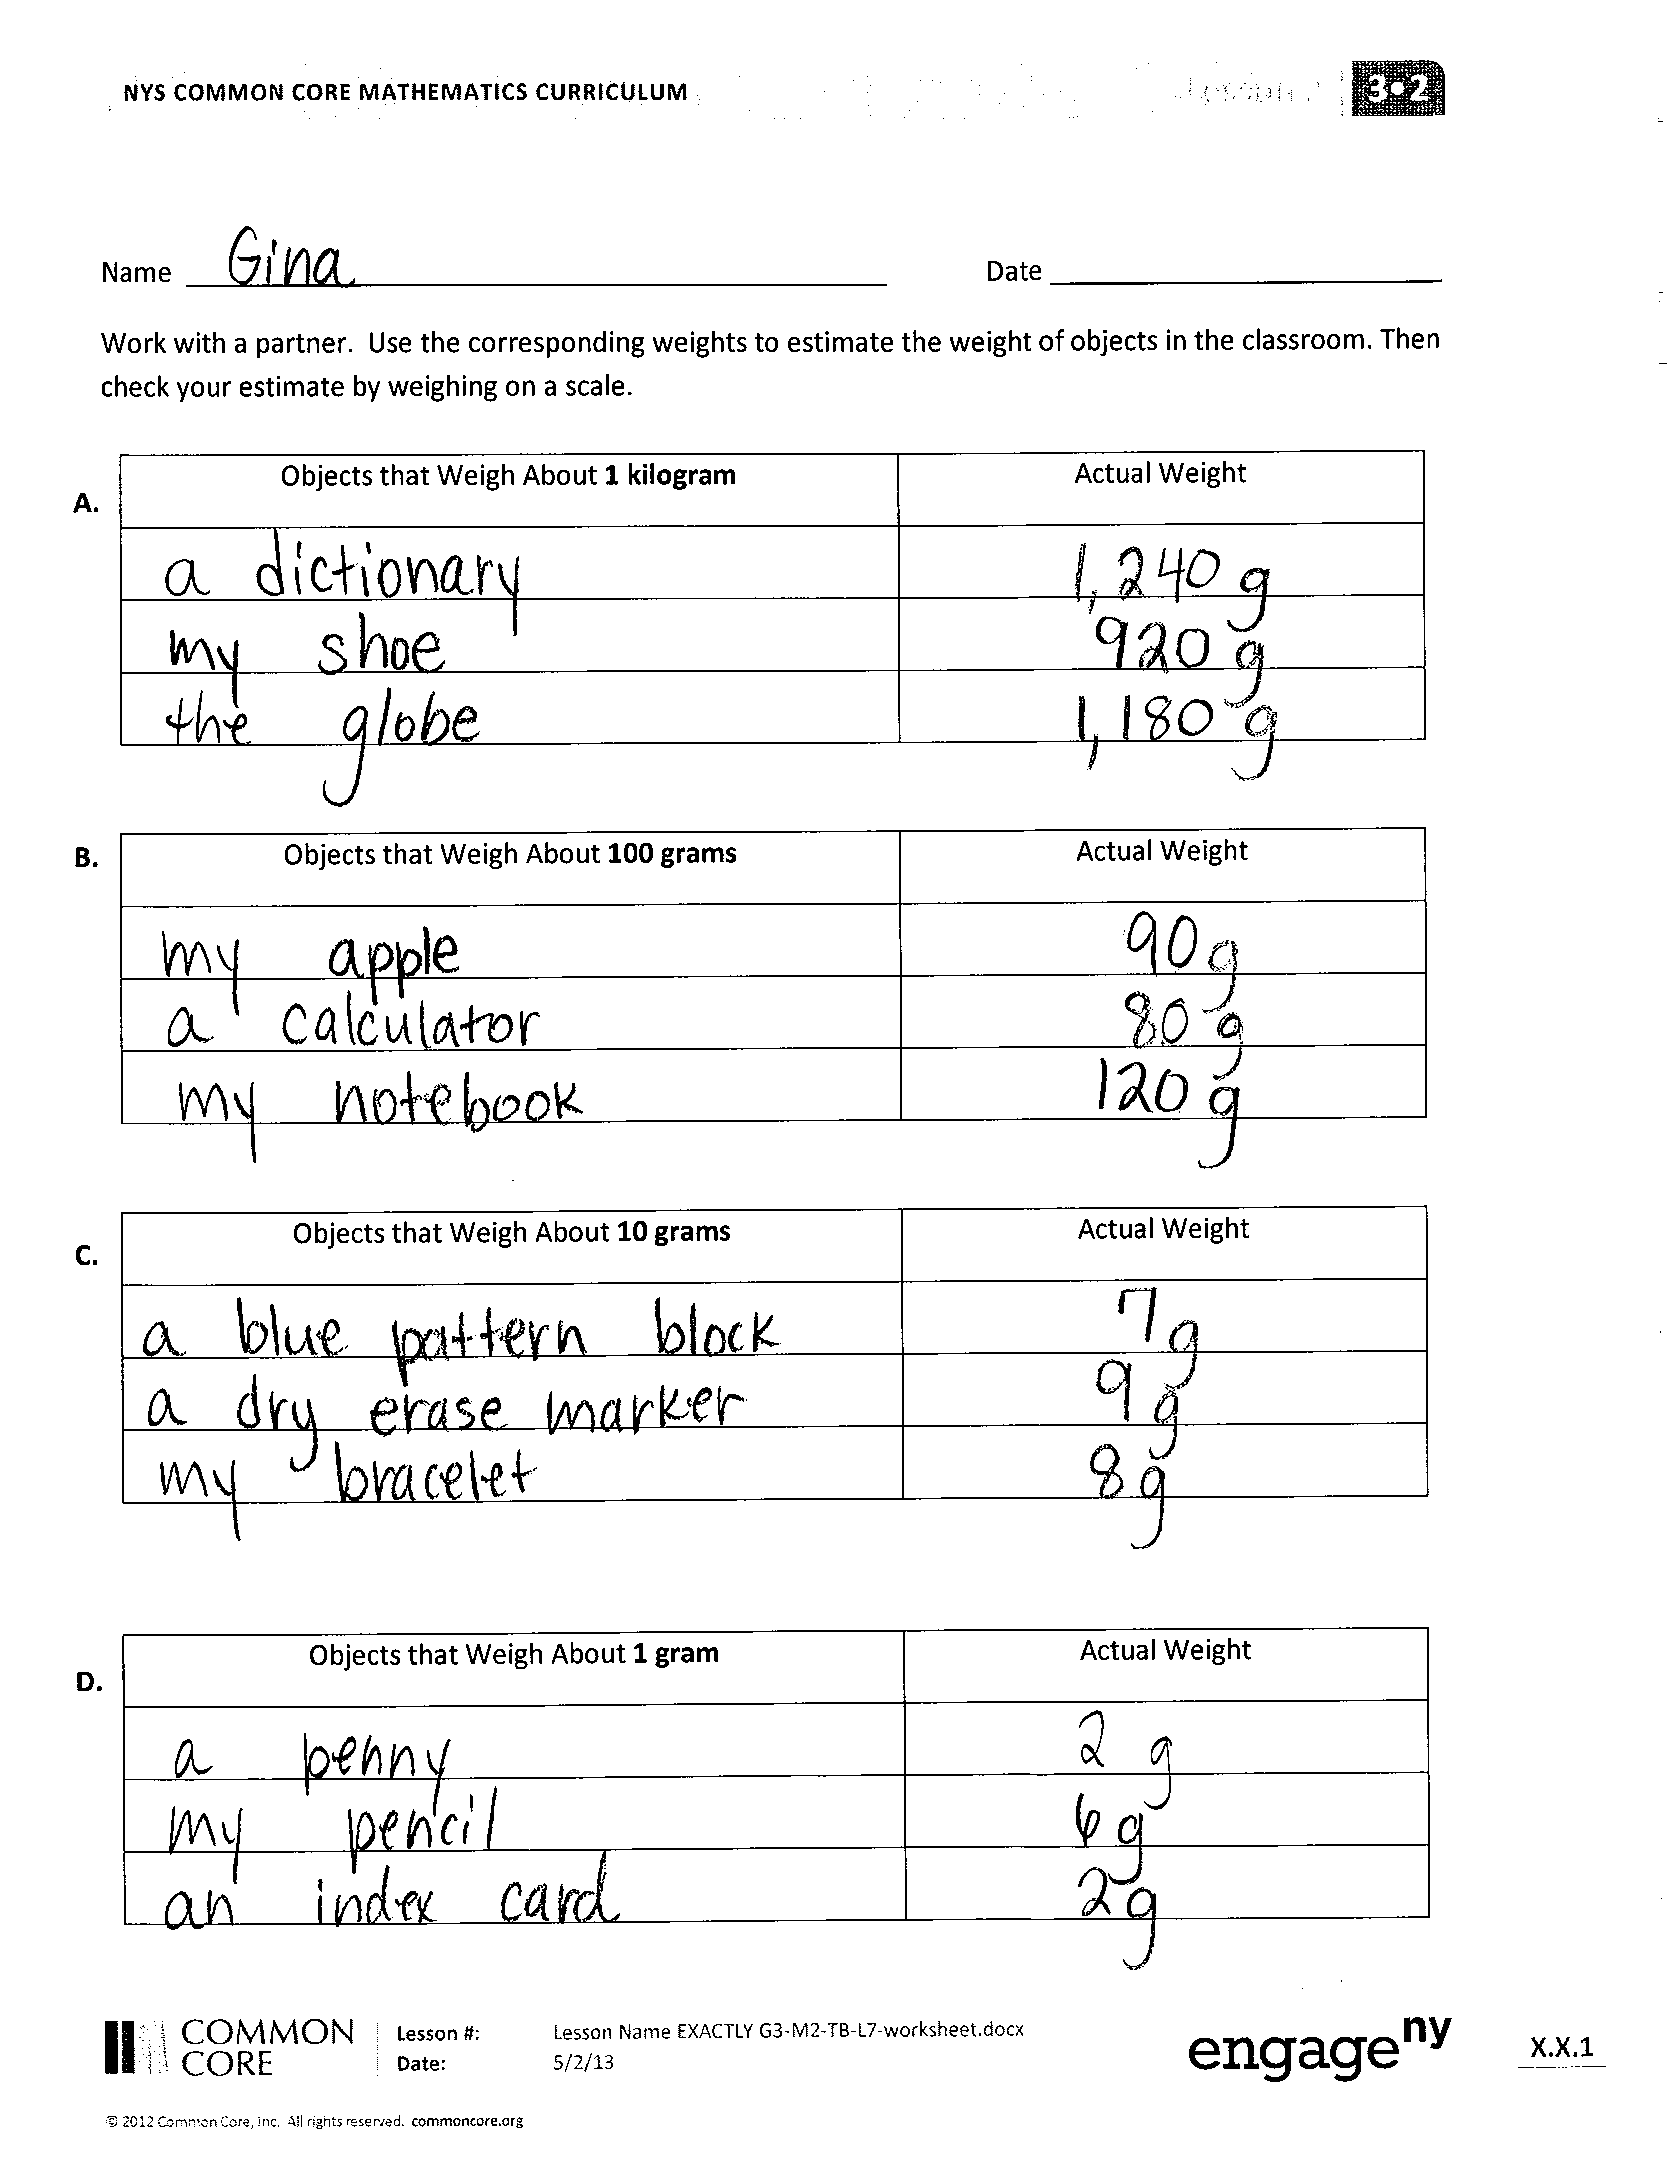 NYS COMMON CORE MATHEMATICS CURRICULUM 3•2
Name Gina Date
Work with a partner. Use the corresponding weights to estimate the weight of objects in the classroom. Then
check your estimate by weighing on a scale.
A.
Objects that Weigh About 1 kilogram Actual Weight
a dictionary 1,240 g
my shoe 920 g
the globe 1,180 g
B.
Objects that Weigh About 100 grams Actual Weight
my apple 90 g
a calculator 80 g
my notebook 120 g
C.
Objects that Weigh About 10 grams Actual Weight
a blue pattern block 7 g
a dry erase marker 9 g
my bracelet 8g
D.
Objects that Weigh About 1 gram Actual Weight
a penny 2 g
my pencil 6g
an index card 2g
COMMON CORE
Lesson #: Lesson Name EXACTLY G3-M2-TB-L7-worksheet.docx
Date: 5/2/13
engageny
X.X.1
© 2012 Common Core, Inc. All rights reserved. commoncore.org